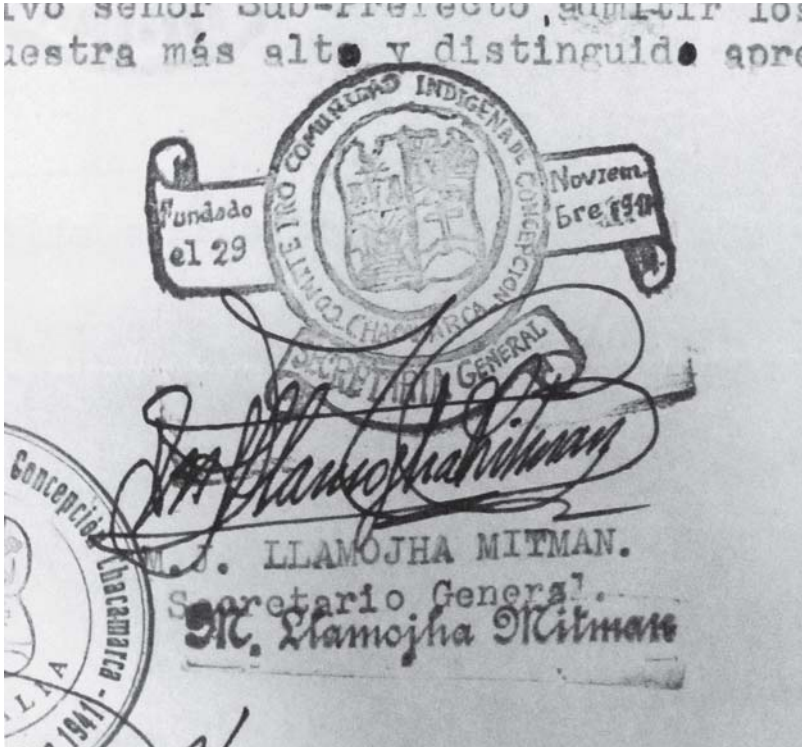 señor Sub-Prefecto admitir los
uestra más alto y distinguido apre
COMITE PRO COMUNIDAD INDIGENA DE CONCEPCION CHACAMARCA
Fundado
el 29
Noviem
bre 1941
SECRETARIA GENERAL
Llamojha Mitman
M. J. LLAMOJHA MITMAN.
Secretario General.
M. Llamojha Mitman
Concepción Chacamarca - 
1941